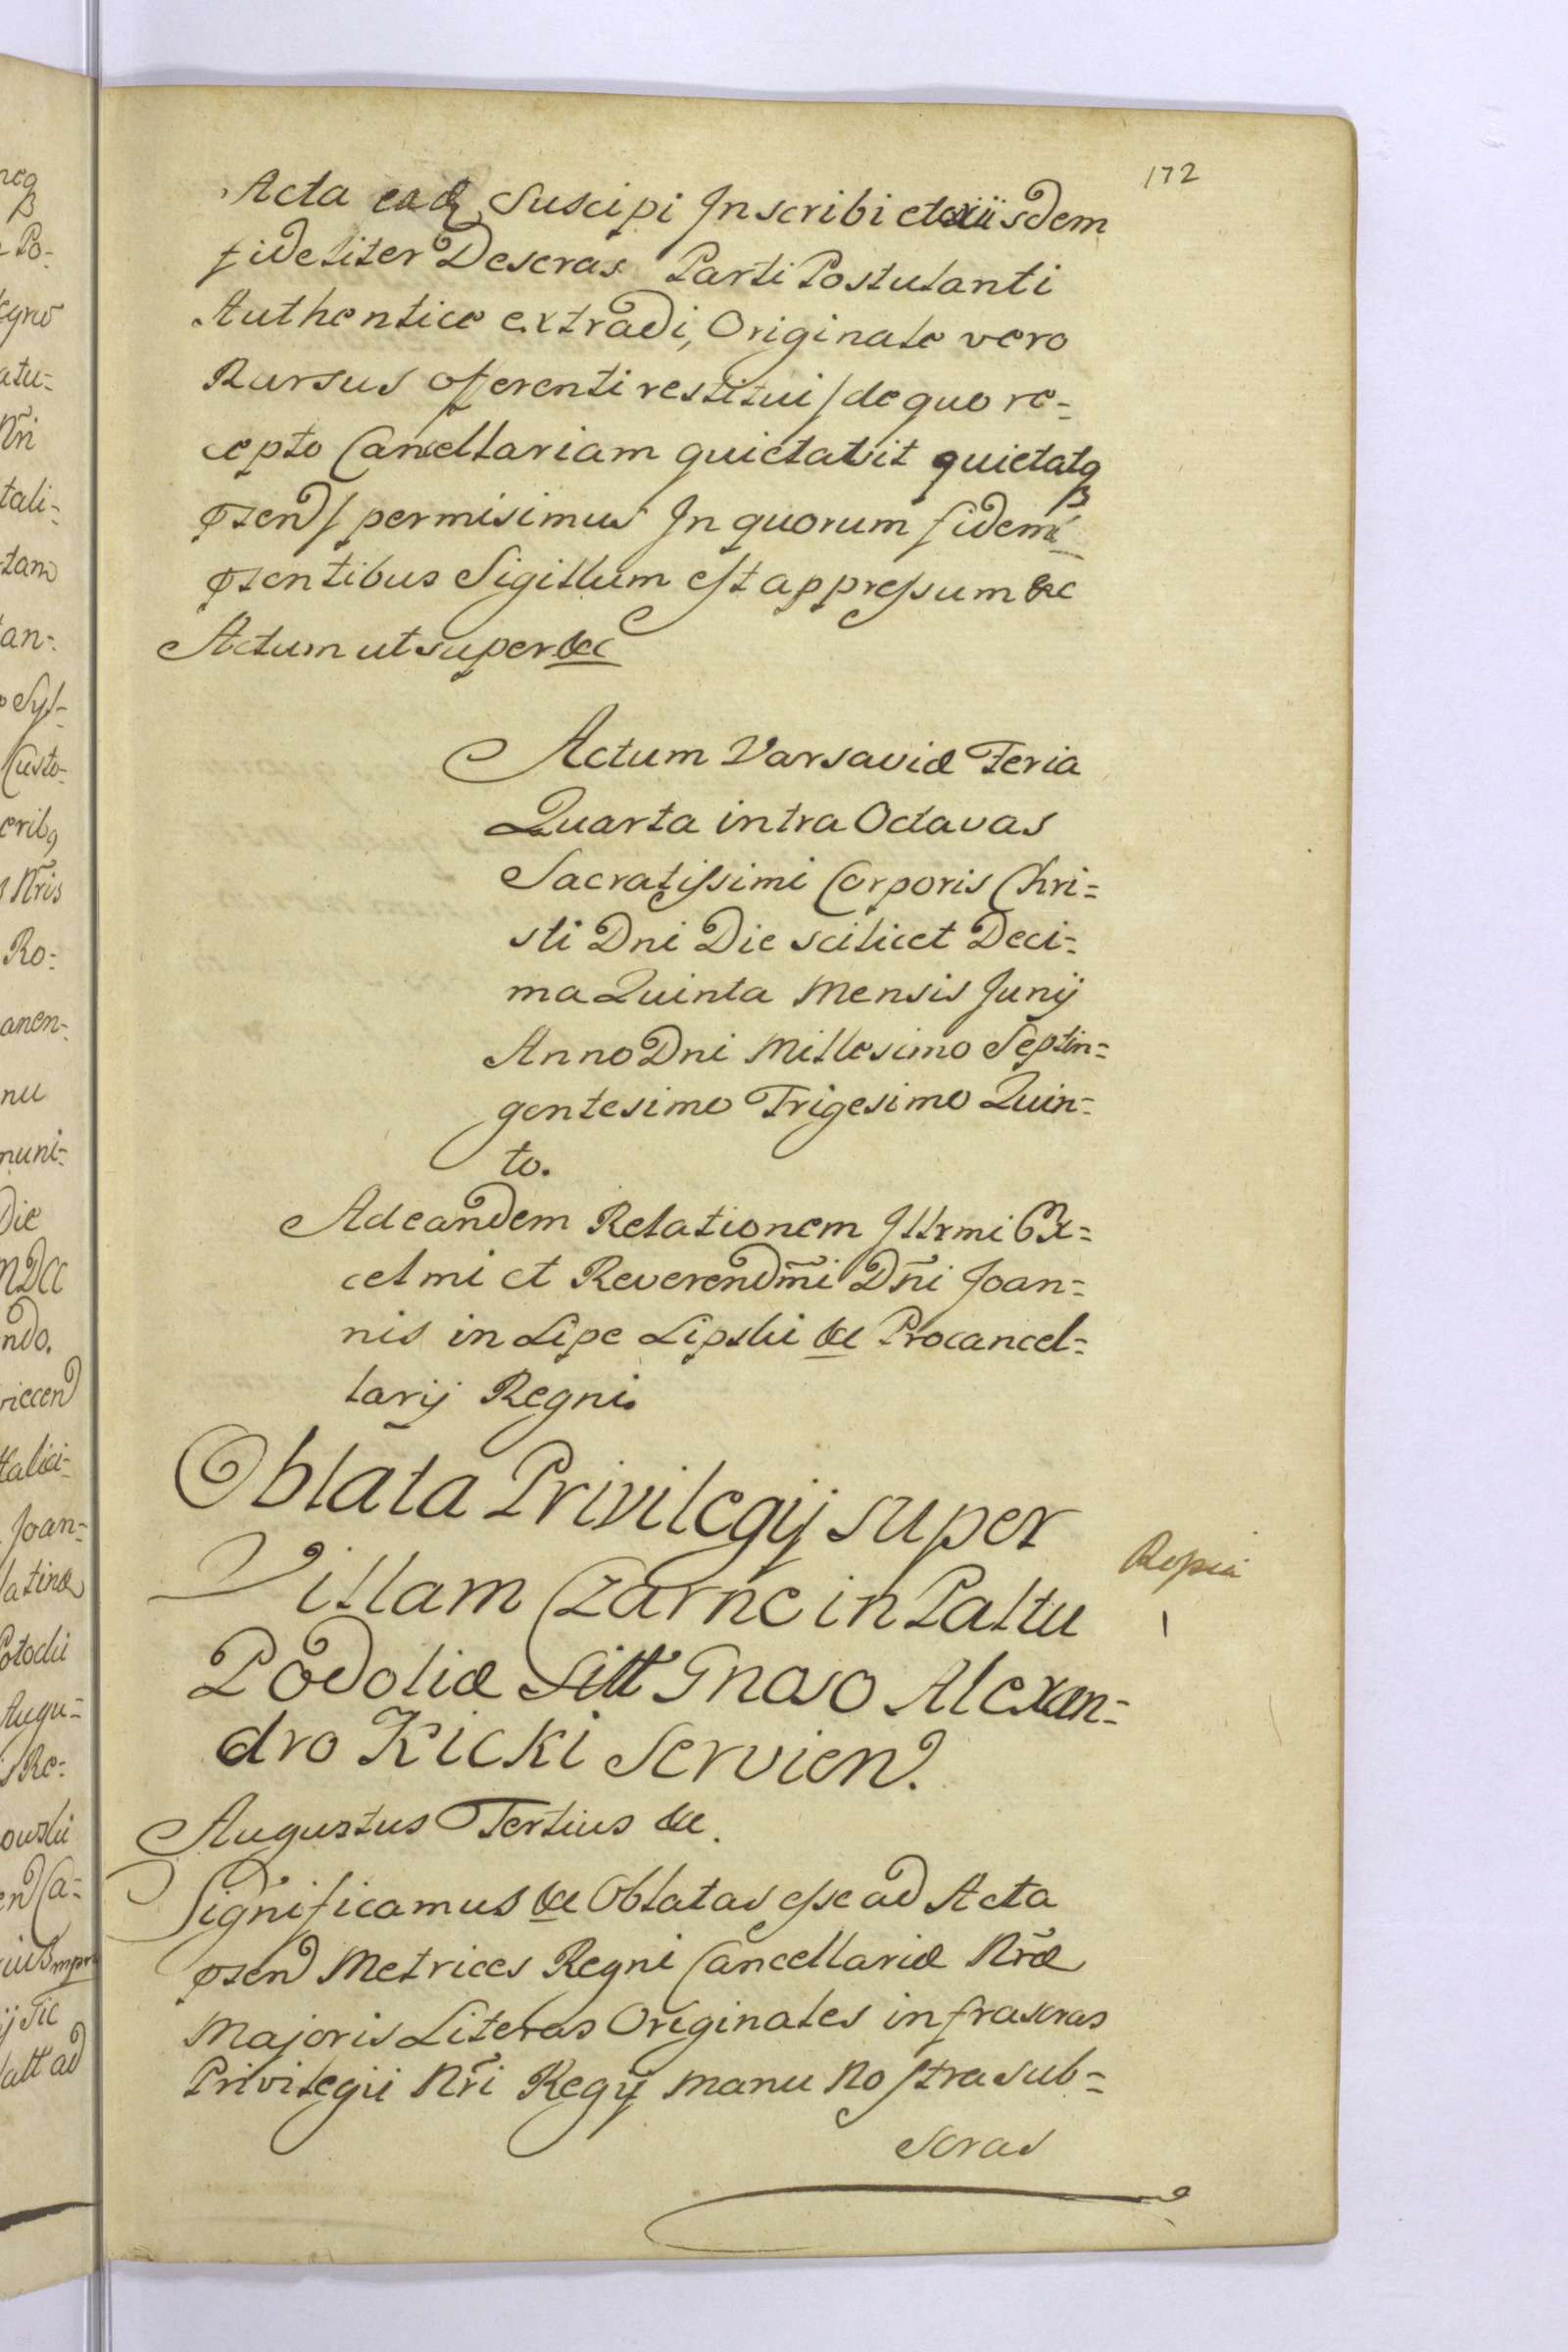 172
Acta eadq Suscipi Inscribi et ex iisdem
fideliter Descras Parti Postulanti
Authentice extradi, Originale vero
Rursus offerenti restitui / de quo re=
cepto Cancellariam quietavit quietatq
pñsen / permisimus In quorum fidem
pñsentibus Sigillum est appressum &c
Actum ut super &c
Actum Varsaviæ Feria
Quarta intra Octavas
Sacratissimi Corporis Chri=
sti Dni Die scilicet Deci=
ma Quinta Mensis Junij
Anno Dni Millesimo Septin=
gentesimo Trigesimo Quin=
to.
Ad eandem Relationem Illrmi Ex=
celmi et Reverendm̃i Dñi Joan=
nis in Lipe Lipski &c Procancel=
larij Regni.
Oblata Privilegij super
Villam Czarne in Palttu
Podoliæ Sitt Gnoso Alexan=
dro Kicki Servien.
Kopia
1
Augustus Tertius &c.
Significamus &c Oblatas esse ad Acta
pñsen Metrices Regni Cancellariæ Nr̃æ
Majoris Literas Originales infrascras
Privilegii Nr̃i Regij manu nostra sub=
scras